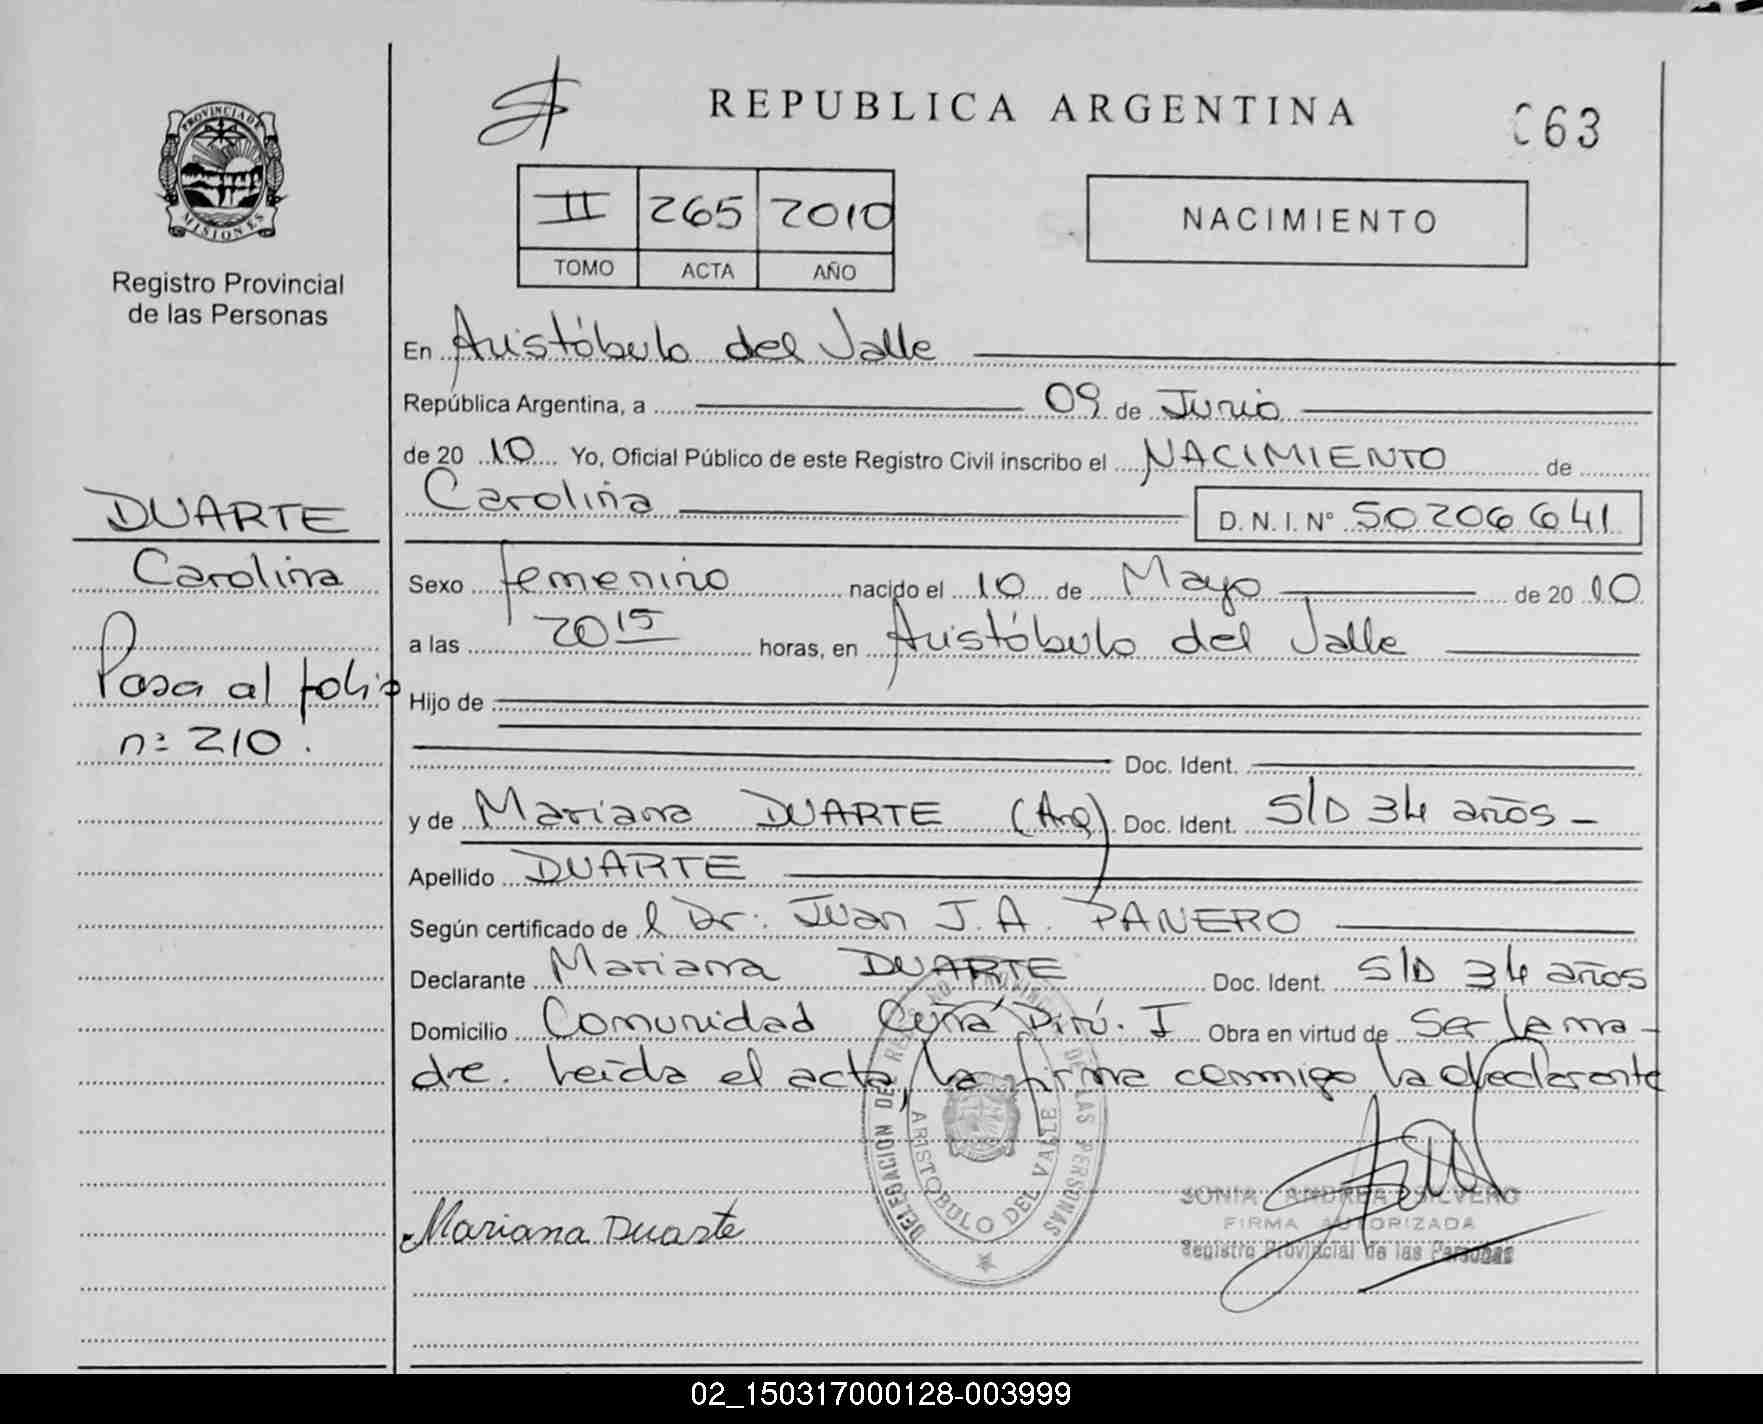 REPUBLICA ARGENTINA
63
PROVINCIA DE
MISIONES
Registro Provincial
de las Personas
II 265 2010
TOMO ACTA AÑO
NACIMIENTO
En Aristóbulo del Valle
República Argentina, a 09 de Junio
de 20 10 Yo, Oficial Público de este Registro Civil inscribo el NACIMIENTO de
Carolina D. N. I. N° 50206641
DUARTE
Carolina
Pasa al folio
nº 210.
Sexo femenino nacido el 10 de Mayo de 20 10
a las 20 15 horas, en Aristóbulo del Valle
Hijo de
Doc. Ident.
y de Mariana DUARTE (Arg) Doc. Ident. S/D 34 años -
Apellido DUARTE
Según certificado de l Dr: Juan J. A. PANERO
Declarante Mariana DUARTE Doc. Ident. S/D 34 años
Domicilio Comunidad Cuña Pirú. I Obra en virtud de Ser la ma-
dre. Leida el acta, la firma conmigo la declarante
DELEGACION DEL REGISTRO PROVINCIAL DE LAS PERSONAS
ARISTOBULO DEL VALLE
Mariana Duarte
SONIA ANDREA SILVERO
FIRMA AUTORIZADA
Registro Provincial de las Personas
02_150317000128-003999